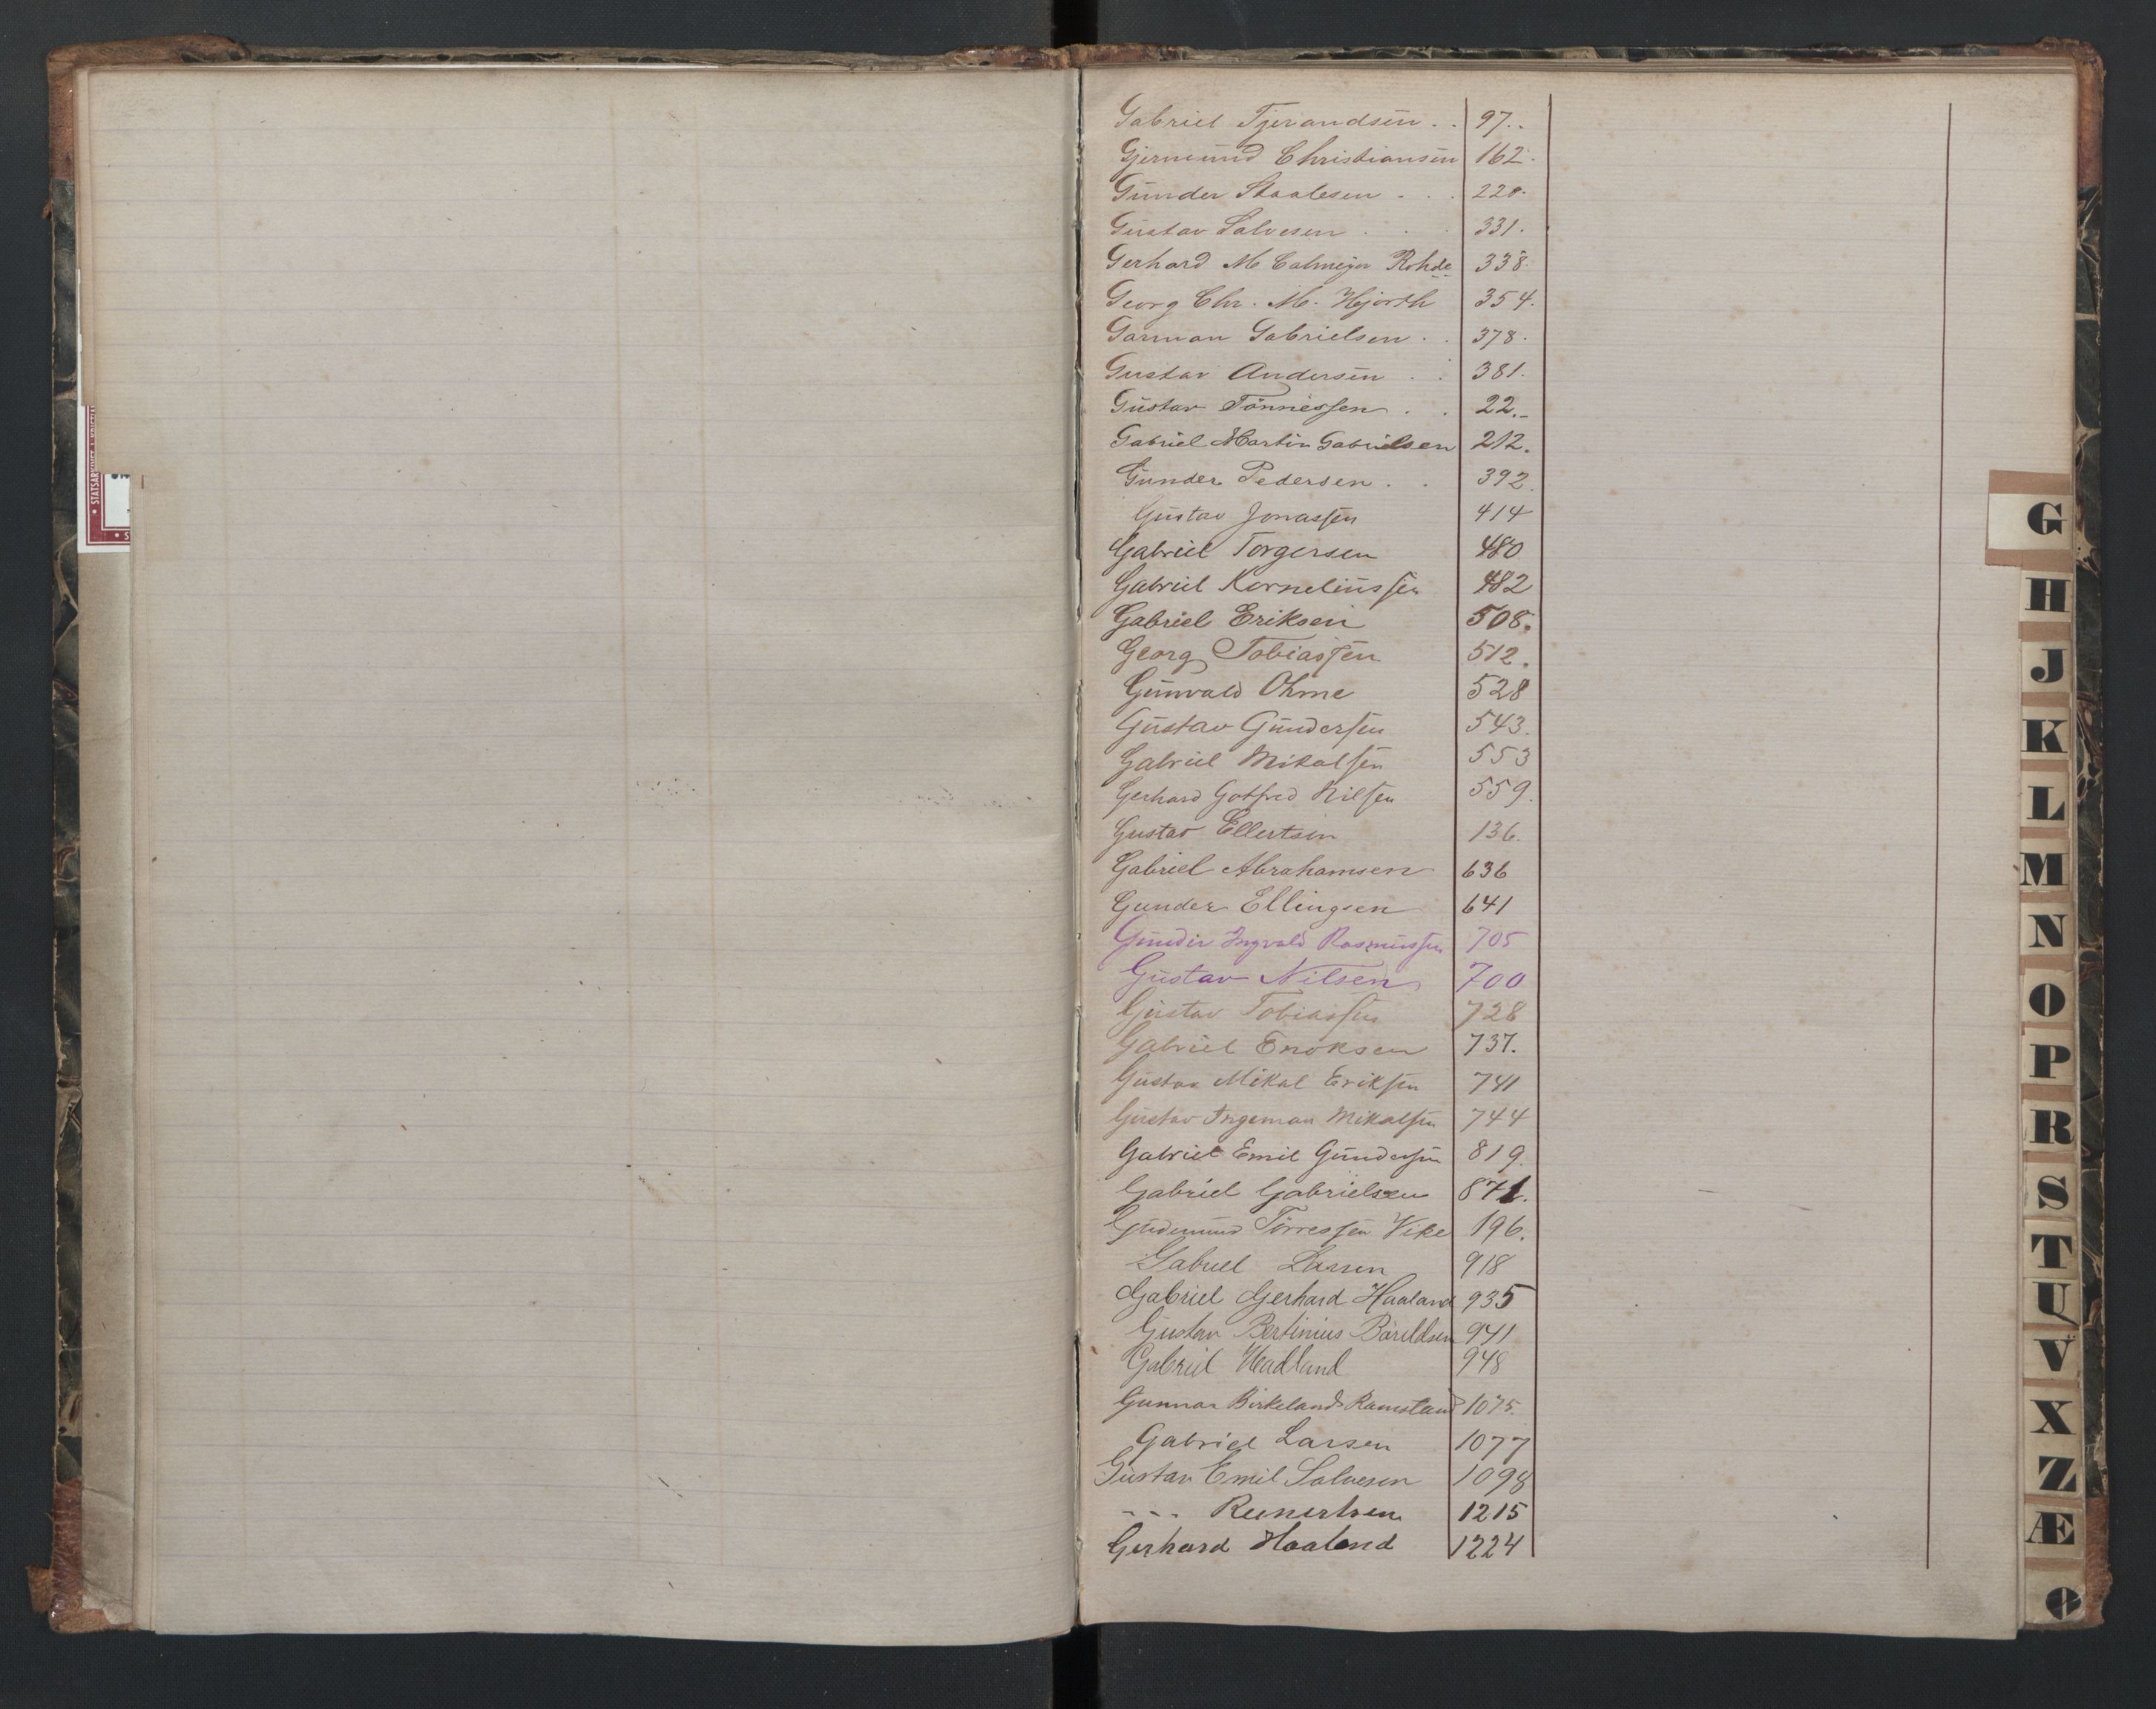 Gabriel Tjerandsen . . 97..
Gjermund Christiansen 162.
Gunder Staalesen . . . 220.
Gustav Salvesen . . . 331.
Gerhard M Calmeyer Rohde 338.
Georg Chr. M. Hjorth 354.
Garman Gabrielsen . . 378.
Gustav Andersen . . 381.
Gustav Tönnessen . . 22.-
Gabriel Martin Gabrielsen 212.
Gunder Pedersen . . 392.
Gustav Jonassen 414
Gabriel Torgersen 480
Gabriel Korneliussen 482
Gabriel Eriksen 508.
Georg Tobiassen 512.
Gunvald Ohme 528
Gustav Gundersen 543.
Gabriel Mikalsen 553
Gerhard Gotfred Nilsen 559.
Gustav Ellertsen 136.
Gabriel Abrahamsen 636
Gunder Ellingsen 641
Gunder Ingvald Rasmussen 705
Gustav Nilsen 700
Gustav Tobiassen 728
Gabriel Enoksen 737.
Gustav Mikal Eriksen 741
Gustav Ingeman Mikalsen 744
Gabriel Emil Gundersen 819.
Gabriel Gabrielsen 871.
Gudmund Törressen Vike 196.
Gabriel Larsen 918
Gabriel Gerhard Haaland 935
Gustav Bertinius 941
Gabriel Hadland 948
Gunnar Birkeland Ramstad 1075.
Gabriel Larsen 1077
Gustav Emil Salvesen 1098
- - - Reinertsen 1215
Gerhard Haaland 1224
G
H
J
K
L
M
N
O
P
R
S
T
U
V
X
Z
Æ
Ø